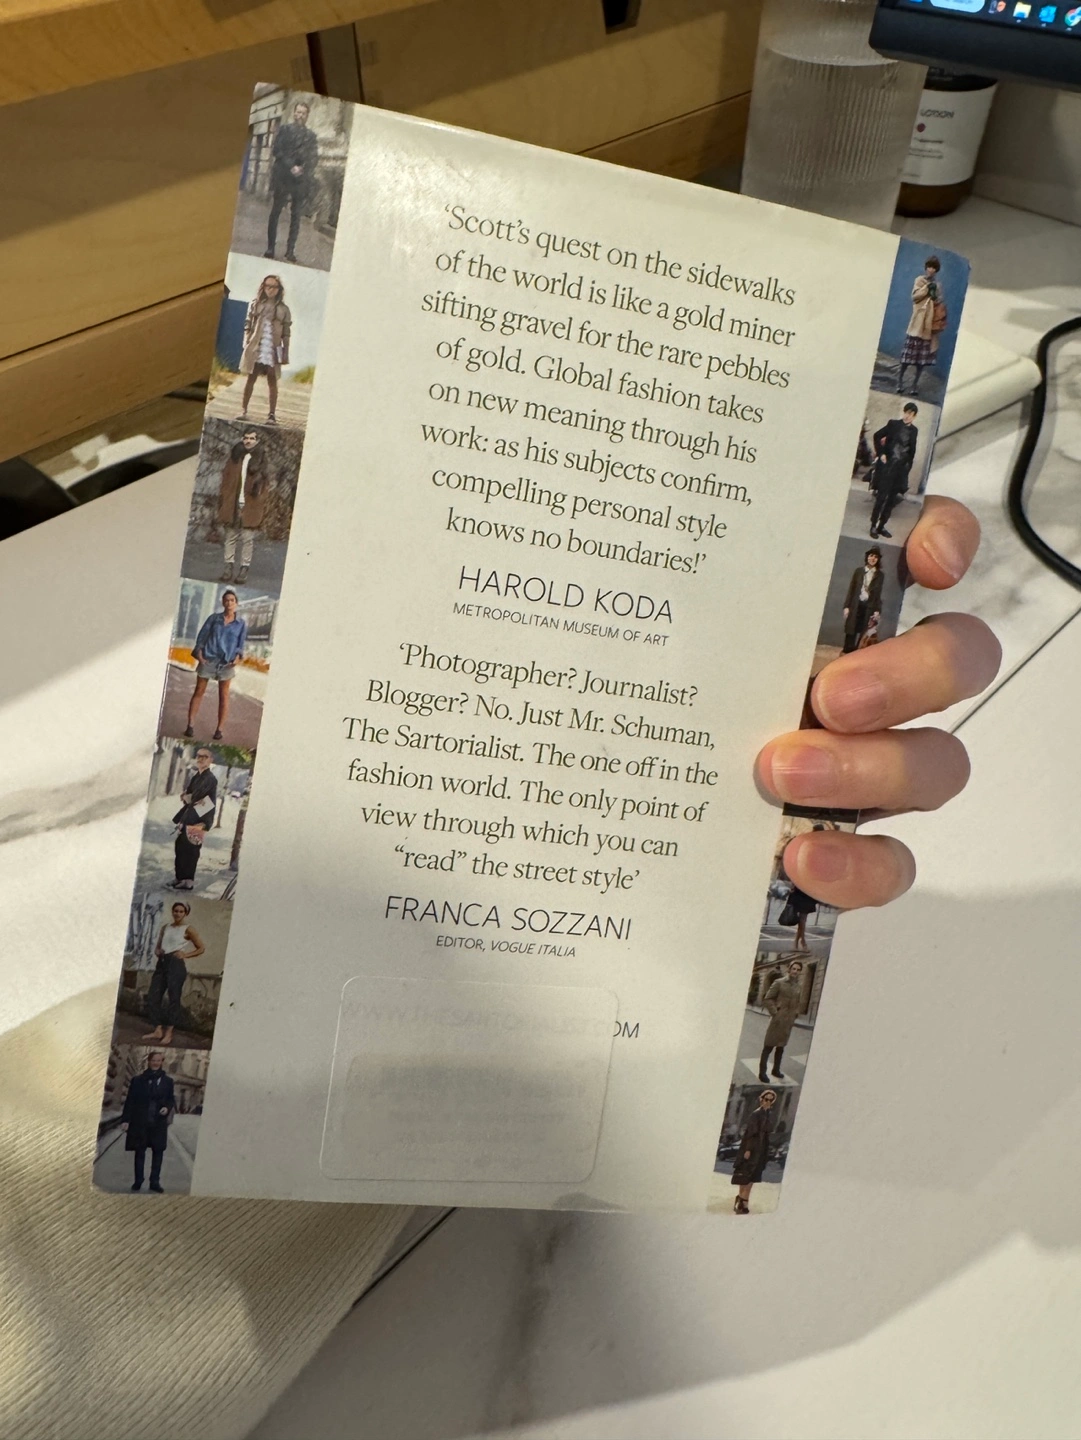 LOTION
‘Scott’s quest on the sidewalks
of the world is like a gold miner
sifting gravel for the rare pebbles
of gold. Global fashion takes
on new meaning through his
work: as his subjects confirm,
compelling personal style
knows no boundaries!’
HAROLD KODA
METROPOLITAN MUSEUM OF ART
‘Photographer? Journalist?
Blogger? No. Just Mr. Schuman,
The Sartorialist. The one off in the
fashion world. The only point of
view through which you can
“read” the street style’
FRANCA SOZZANI
EDITOR, VOGUE ITALIA
WWW.THESARTORIALIST.COM